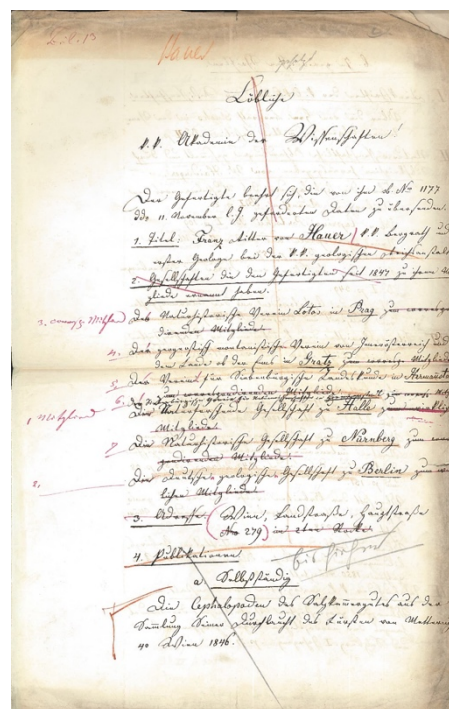 Hauer
Löbliche
k. k. Akademie der Wissenschaften!
Der Gefertigte beehrt sich, die von ihm ob No 1177
ddo 11. November l. J. geforderten Daten zu übersenden.
1. Titel: Franz Ritter von Hauer, k. k. Bergrath und
erster Geologe bei der k. k. geologischen Reichsanstalt
2. Gesellschaften die den Gefertigten seit 1847 zu ihrem Mit
gliede ernannt haben.
3. Der Naturhistorische Verein Lotos in Prag zum
Mitgliede
4. Der geognostisch montanistische Verein von Innerösterreich und
dem Lande ob der Enns in Gratz zum Mitglied
5. Der Verein für Siebenbürgische Landeskunde in Hermannsta
Mitgliede
6.
1 Mitglied Die Naturforschende Gesellschaft zu Halle zum
Mitgliede
7. Die Naturhistorische Gesellschaft zu Nürnberg zum
Mitgliede
2. Die deutsche geologische Gesellschaft zu Berlin zum
lichen Mitgliede
3. Adresse (Wien, Landstrasse, Hauptstrasse
No 279) in 2ten Stocke
4. Publikationen
a Selbstständig
Die Cephalopoden des Salzkammergutes aus der
Sammlung Seiner Durchlaucht des Fürsten von Mettern
4o Wien 1846.